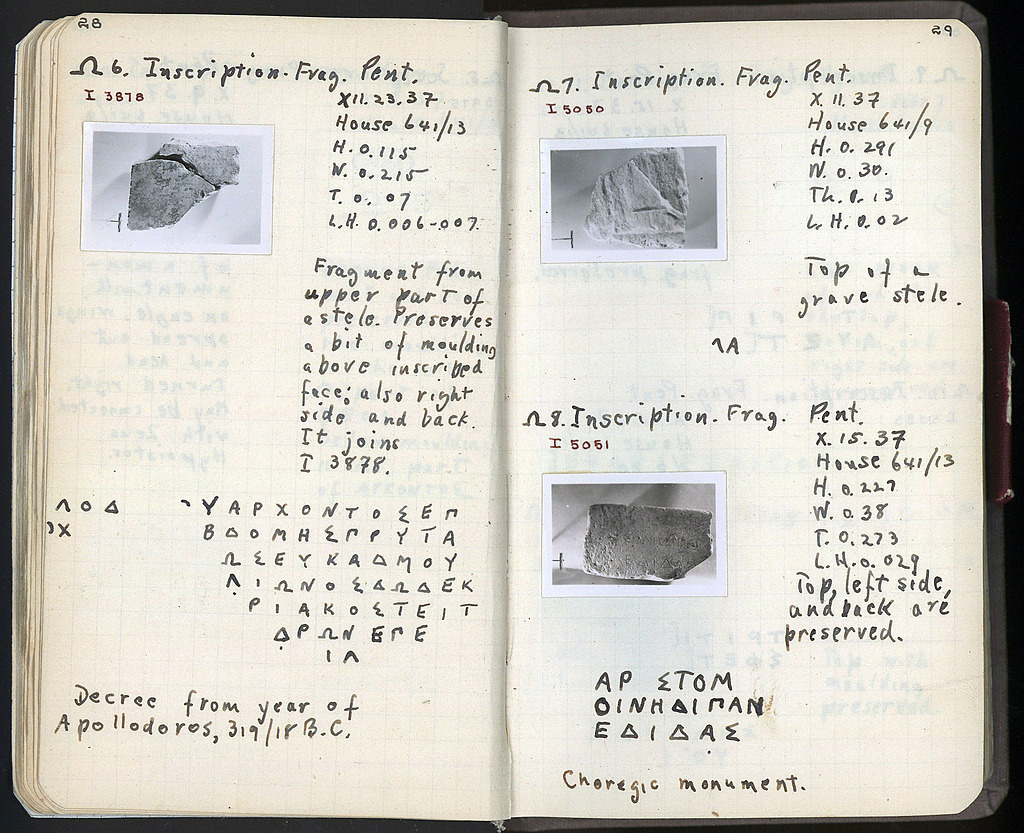 28
Ω 6. Inscription. Frag. Pent.
I 3878
XII. 23. 37
House 641/13
H. 0.115
W. 0.215
T. 0.07
L.H. 0.006-007.
Fragment from
upper part of
a stele. Preserves
a bit of moulding
above inscribed
face; also right
side and back.
It joins
I 3878.
Λ Ο Δ Υ Α Ρ Χ Ο Ν Τ Ο Σ Ε Π
Χ Β Δ Ο Μ Η Σ Π Ρ Υ Τ Α
Ω Σ Ε Υ Κ Α Δ Μ Ο Υ
Λ Ι Ω Ν Ο Σ Δ Ω Δ Ε Κ
Ρ Ι Α Κ Ο Σ Τ Ε Ι Τ
Δ Ρ Ω Ν Ε Π Ε
Ι Λ
Decree from year of
Apollodoros, 319/18 B.C.
29
Ω 7. Inscription. Frag. Pent.
I 5050
X. 11. 37
House 641/9
H. 0.291
W. 0.30.
Th. 0.13
L.H. 0.02
Top of a
grave stele.
ΛΑ
Ω 8. Inscription. Frag. Pent.
I 5051
X. 15. 37
House 641/13
H. 0.227
W. 0.38
T. 0.273
L.H. 0.029
Top, left side,
and back are
preserved.
ΑΡ ΣΤΟΜ
ΟΙΝΗΔΙΠΑΝ
ΕΔΙΔΑΣ
Choregic monument.